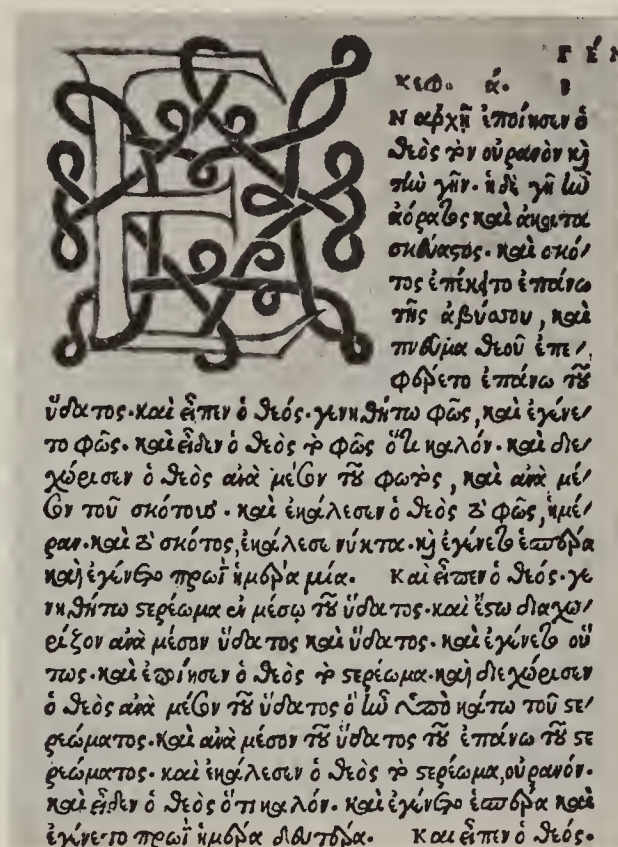 ΓΈΝ
κεφ. ά. Β
Ν αρχῇ ἐποίησεν ὁ
θεὸς τὸν οὐρανὸν κὶ
τὴν γῆν. ἡ δὲ γῆ ἦν
ἀόρατος καὶ ἀκατα
σκεύαστος. καὶ σκό/
τος ἐπέκειτο ἐπάνω
τῆς ἀβύσσου, καὶ
πνεῦμα θεοῦ ἐπε/
φέρετο ἐπάνω τοῦ
ὕδατος. καὶ εἶπεν ὁ θεός. γενηθήτω φῶς, καὶ ἐγένε/
το φῶς. καὶ εἶδεν ὁ θεὸς τὸ φῶς ὅτι καλόν. καὶ διε/
χώρισεν ὁ θεὸς ἀνὰ μέσον τοῦ φωτὸς, καὶ ἀνὰ μέ/
σον τοῦ σκότους. καὶ ἐκάλεσεν ὁ θεὸς τὸ φῶς, ἡμέ/
ραν. καὶ τὸ σκότος, ἐκάλεσε νύκτα. κὶ ἐγένετο ἑσπέρα
καὶ ἐγένετο πρωῒ ἡμέρα μία. Καὶ εἶπεν ὁ θεός. γε
νηθήτω στερέωμα ἐν μέσῳ τοῦ ὕδατος. καὶ ἔστω διαχω/
ρίζον ἀνὰ μέσον ὕδατος καὶ ὕδατος. καὶ ἐγένετο οὕ
τως. καὶ ἐποίησεν ὁ θεὸς τὸ στερέωμα. καὶ διεχώρισεν
ὁ θεὸς ἀνὰ μέσον τοῦ ὕδατος ὃ ἦν ὑπὸ κάτω τοῦ στε/
ρεώματος. καὶ ἀνὰ μέσον τοῦ ὕδατος τοῦ ἐπάνω τοῦ στε
ρεώματος. καὶ ἐκάλεσεν ὁ θεὸς τὸ στερέωμα, οὐρανόν.
καὶ εἶδεν ὁ θεὸς ὅτι καλόν. καὶ ἐγένετο ἑσπέρα καὶ
ἐγένετο πρωῒ ἡμέρα δευτέρα. Καὶ εἶπεν ὁ θεός.